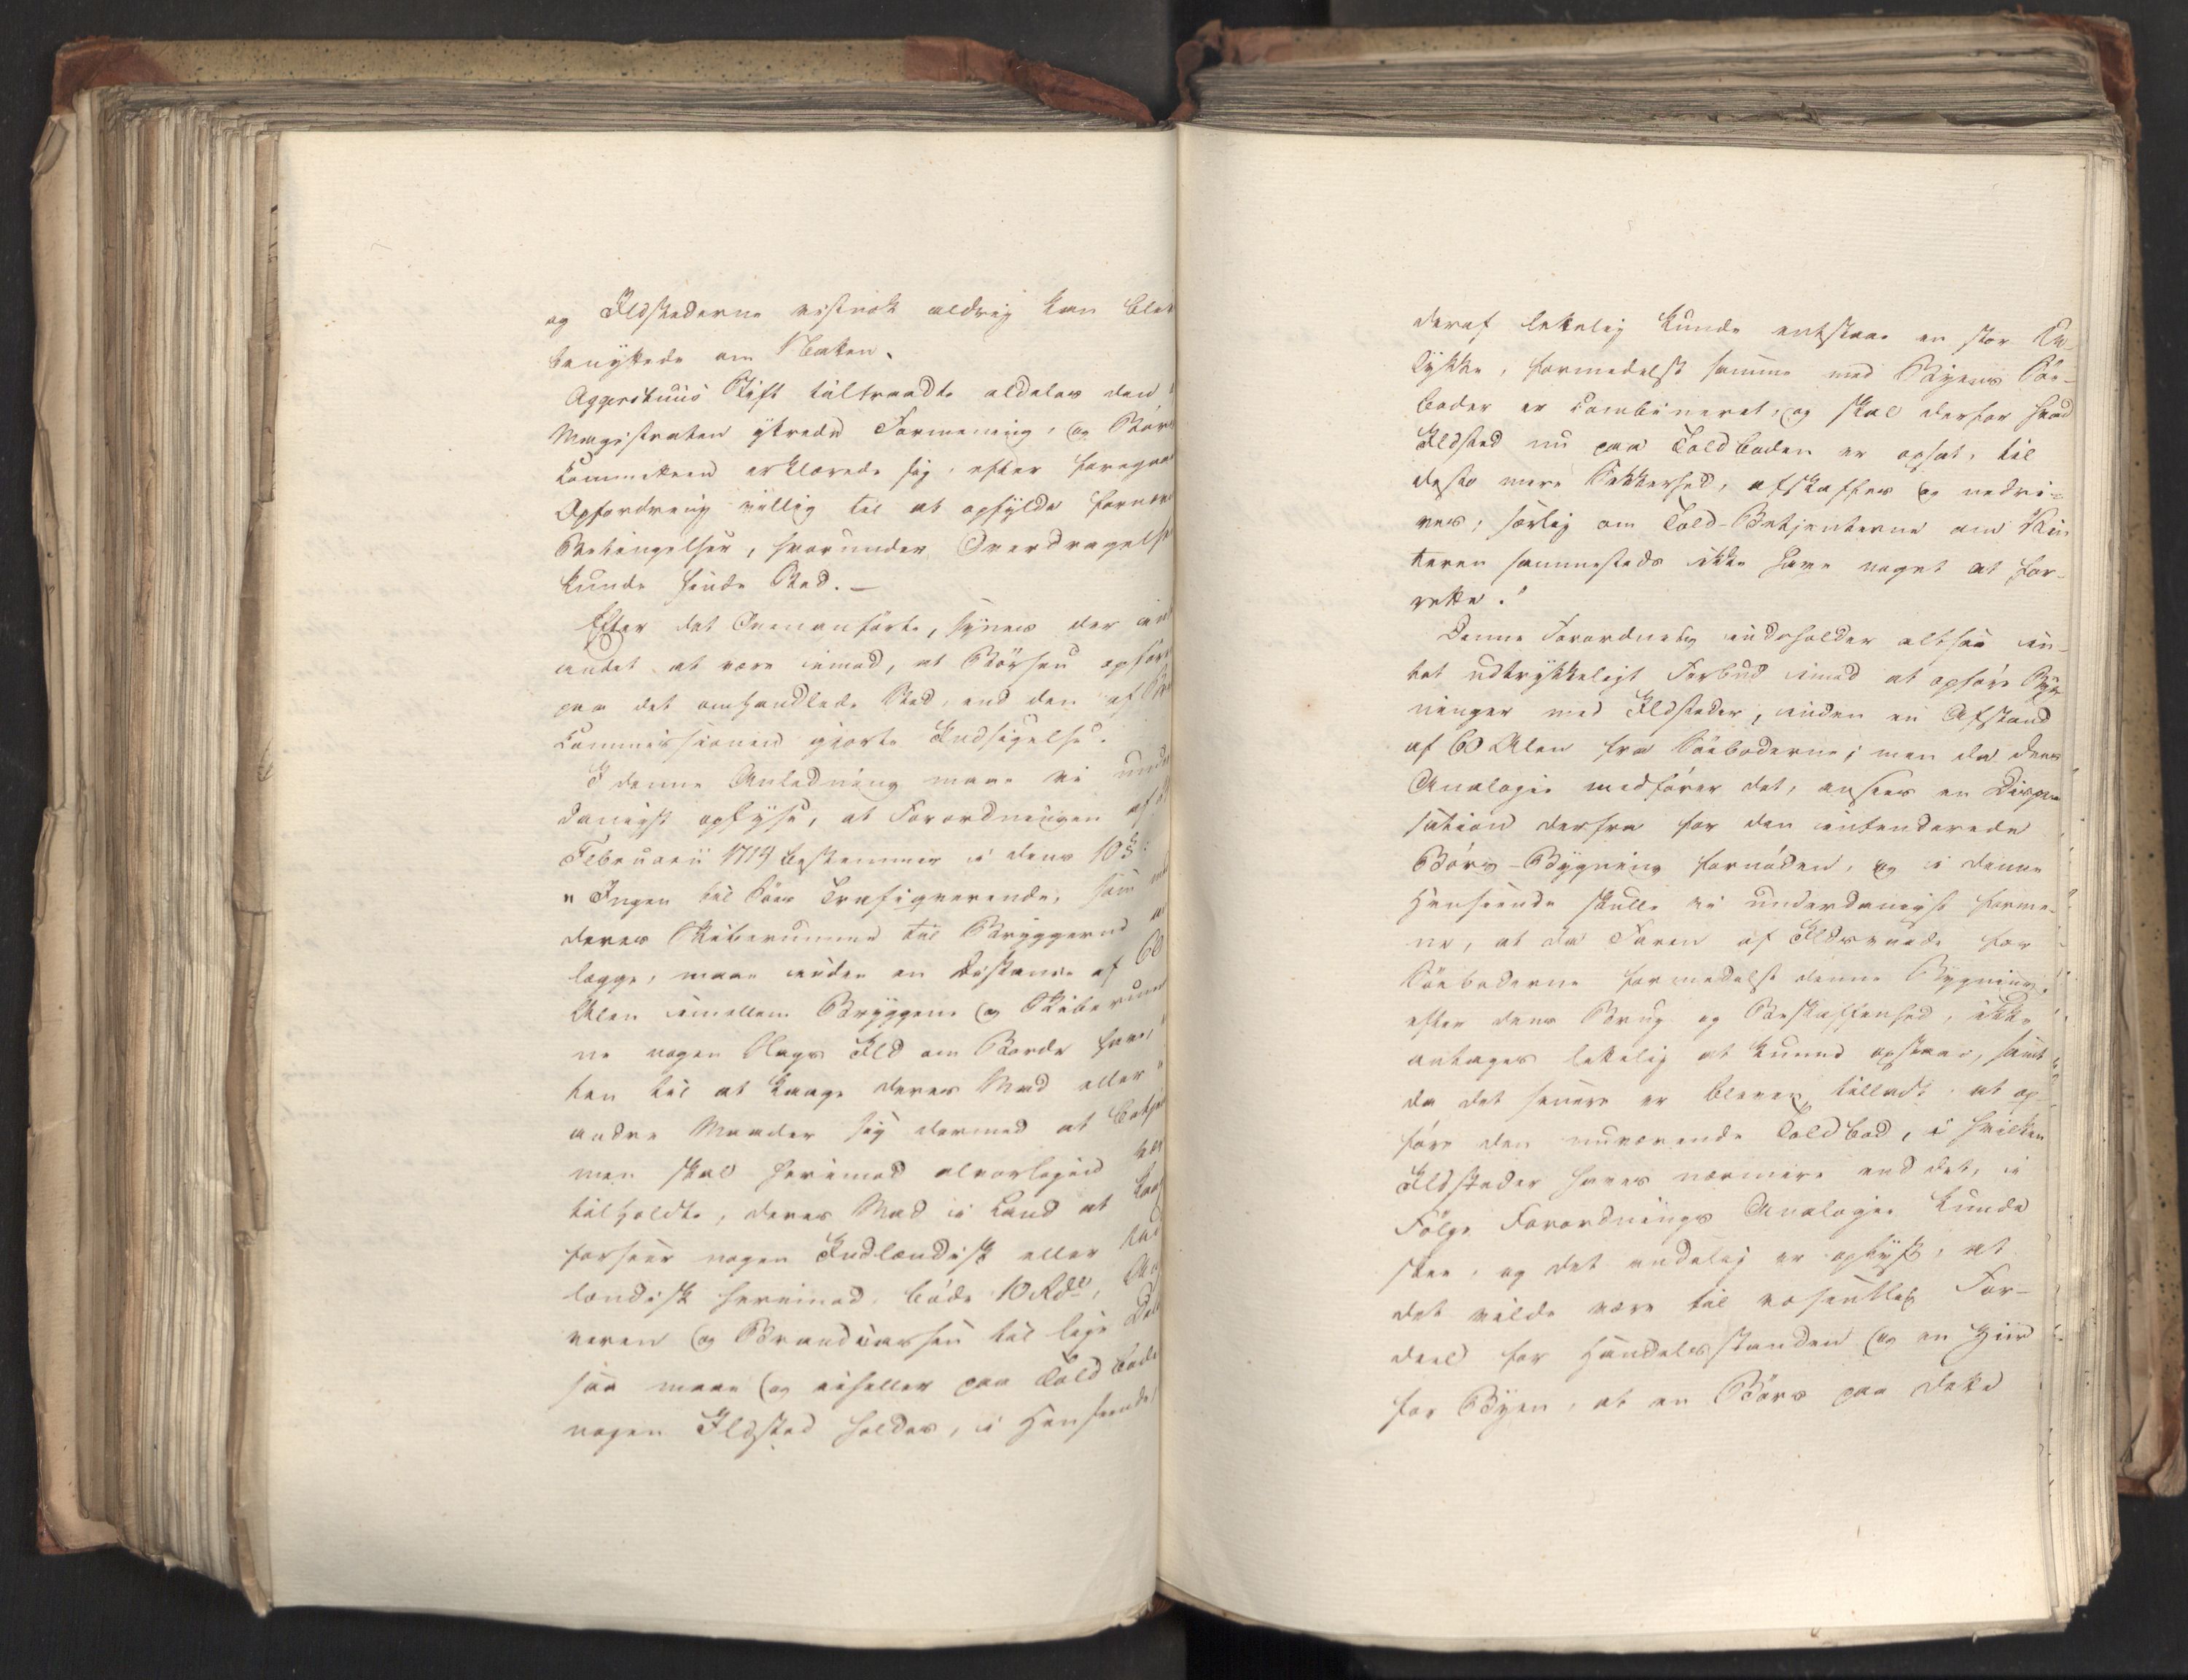 og Ildstederne vistnok aldrig kan blev
benyttede om Natten.
Aggershuus Stift tiltraadte aldeles den
Magistraten yttrede Formening, og Børs
Committeen erklærede sig, efter foregaae
Opfordring villig til at opfylde fornævn
Betingelser, hvorunder Overdragelse
kunde finde Sted. —
Efter det Ovenanførte, synes der int
andet at være imod, at Børsen opføres
paa det omhandlede Sted, end den af
Commissionen gjorte Indsigelse.
I denne Anledning maae vi under
danigst oplyse, at Forordningen af
Februarii 1714 bestemmer i dens 10 §:
"Ingen til Søes Trafiqverende, som
deres Skiberumme til Bryggerne
lægge, maae inden en Distance af 60
Alen imellem Bryggene og Skiberum
ne nogen Slags Ild om Borde have,
ten til at kaage deres Mad eller
andre Maader sig dermed at betjene
men skal herimod alvorligen
tilholdte, deres Mad i Land at kaage
forseer nogen Indlændisk eller Ud
lændisk herimod, bøde 10 Rdl,
veren og Brandcassen til lige Dele
saa maae og eiheller paa Toldboden
nogen Ildsted holdes, i Henseende,
deraf lettelig kunde entstaae en stor U-
lykke, formedelst samme med Byens Søe-
boder er combineret, og skal derfor hvad
Ildsted nu paa Toldboden er opsat, til
desto mere Sikkerhed, afskaffes og nedri-
ves, særlig om Told-Betjenterne om Vin
teren sammesteds ikke have noget at for-
rette."
Denne Forordning indeholder altsaa in-
tet udtrykkeligt Forbud imod at opføre Byg
ninger med Ildsteder, inden en Afstand
af 60 Alen fra Søeboderne; men da dens
Analogie medfører det, ansees en Dispen
sation derfra for den intenderede
Børs-Bygning fornøden, og i denne
Henseende skulle vi underdanigst forme-
ne, at da Faren af Ildsvaade for
Søeboderne formedelst denne Bygning,
efter dens Brug og Beskaffenhed, ikke
antages lettelig at kunne opstaae, samt
da det senere er bleven tilladt, at op-
føre den nuværende Toldbod, i hvilken
Ildsteder haves nærmere end det, i
Følge Forordnings Analogie kunde
skee, og det endelig er oplyst, at
det vilde være til væsentlig For-
deel for Handelsstanden og en Ziir
for Byen, at en Børs paa dette